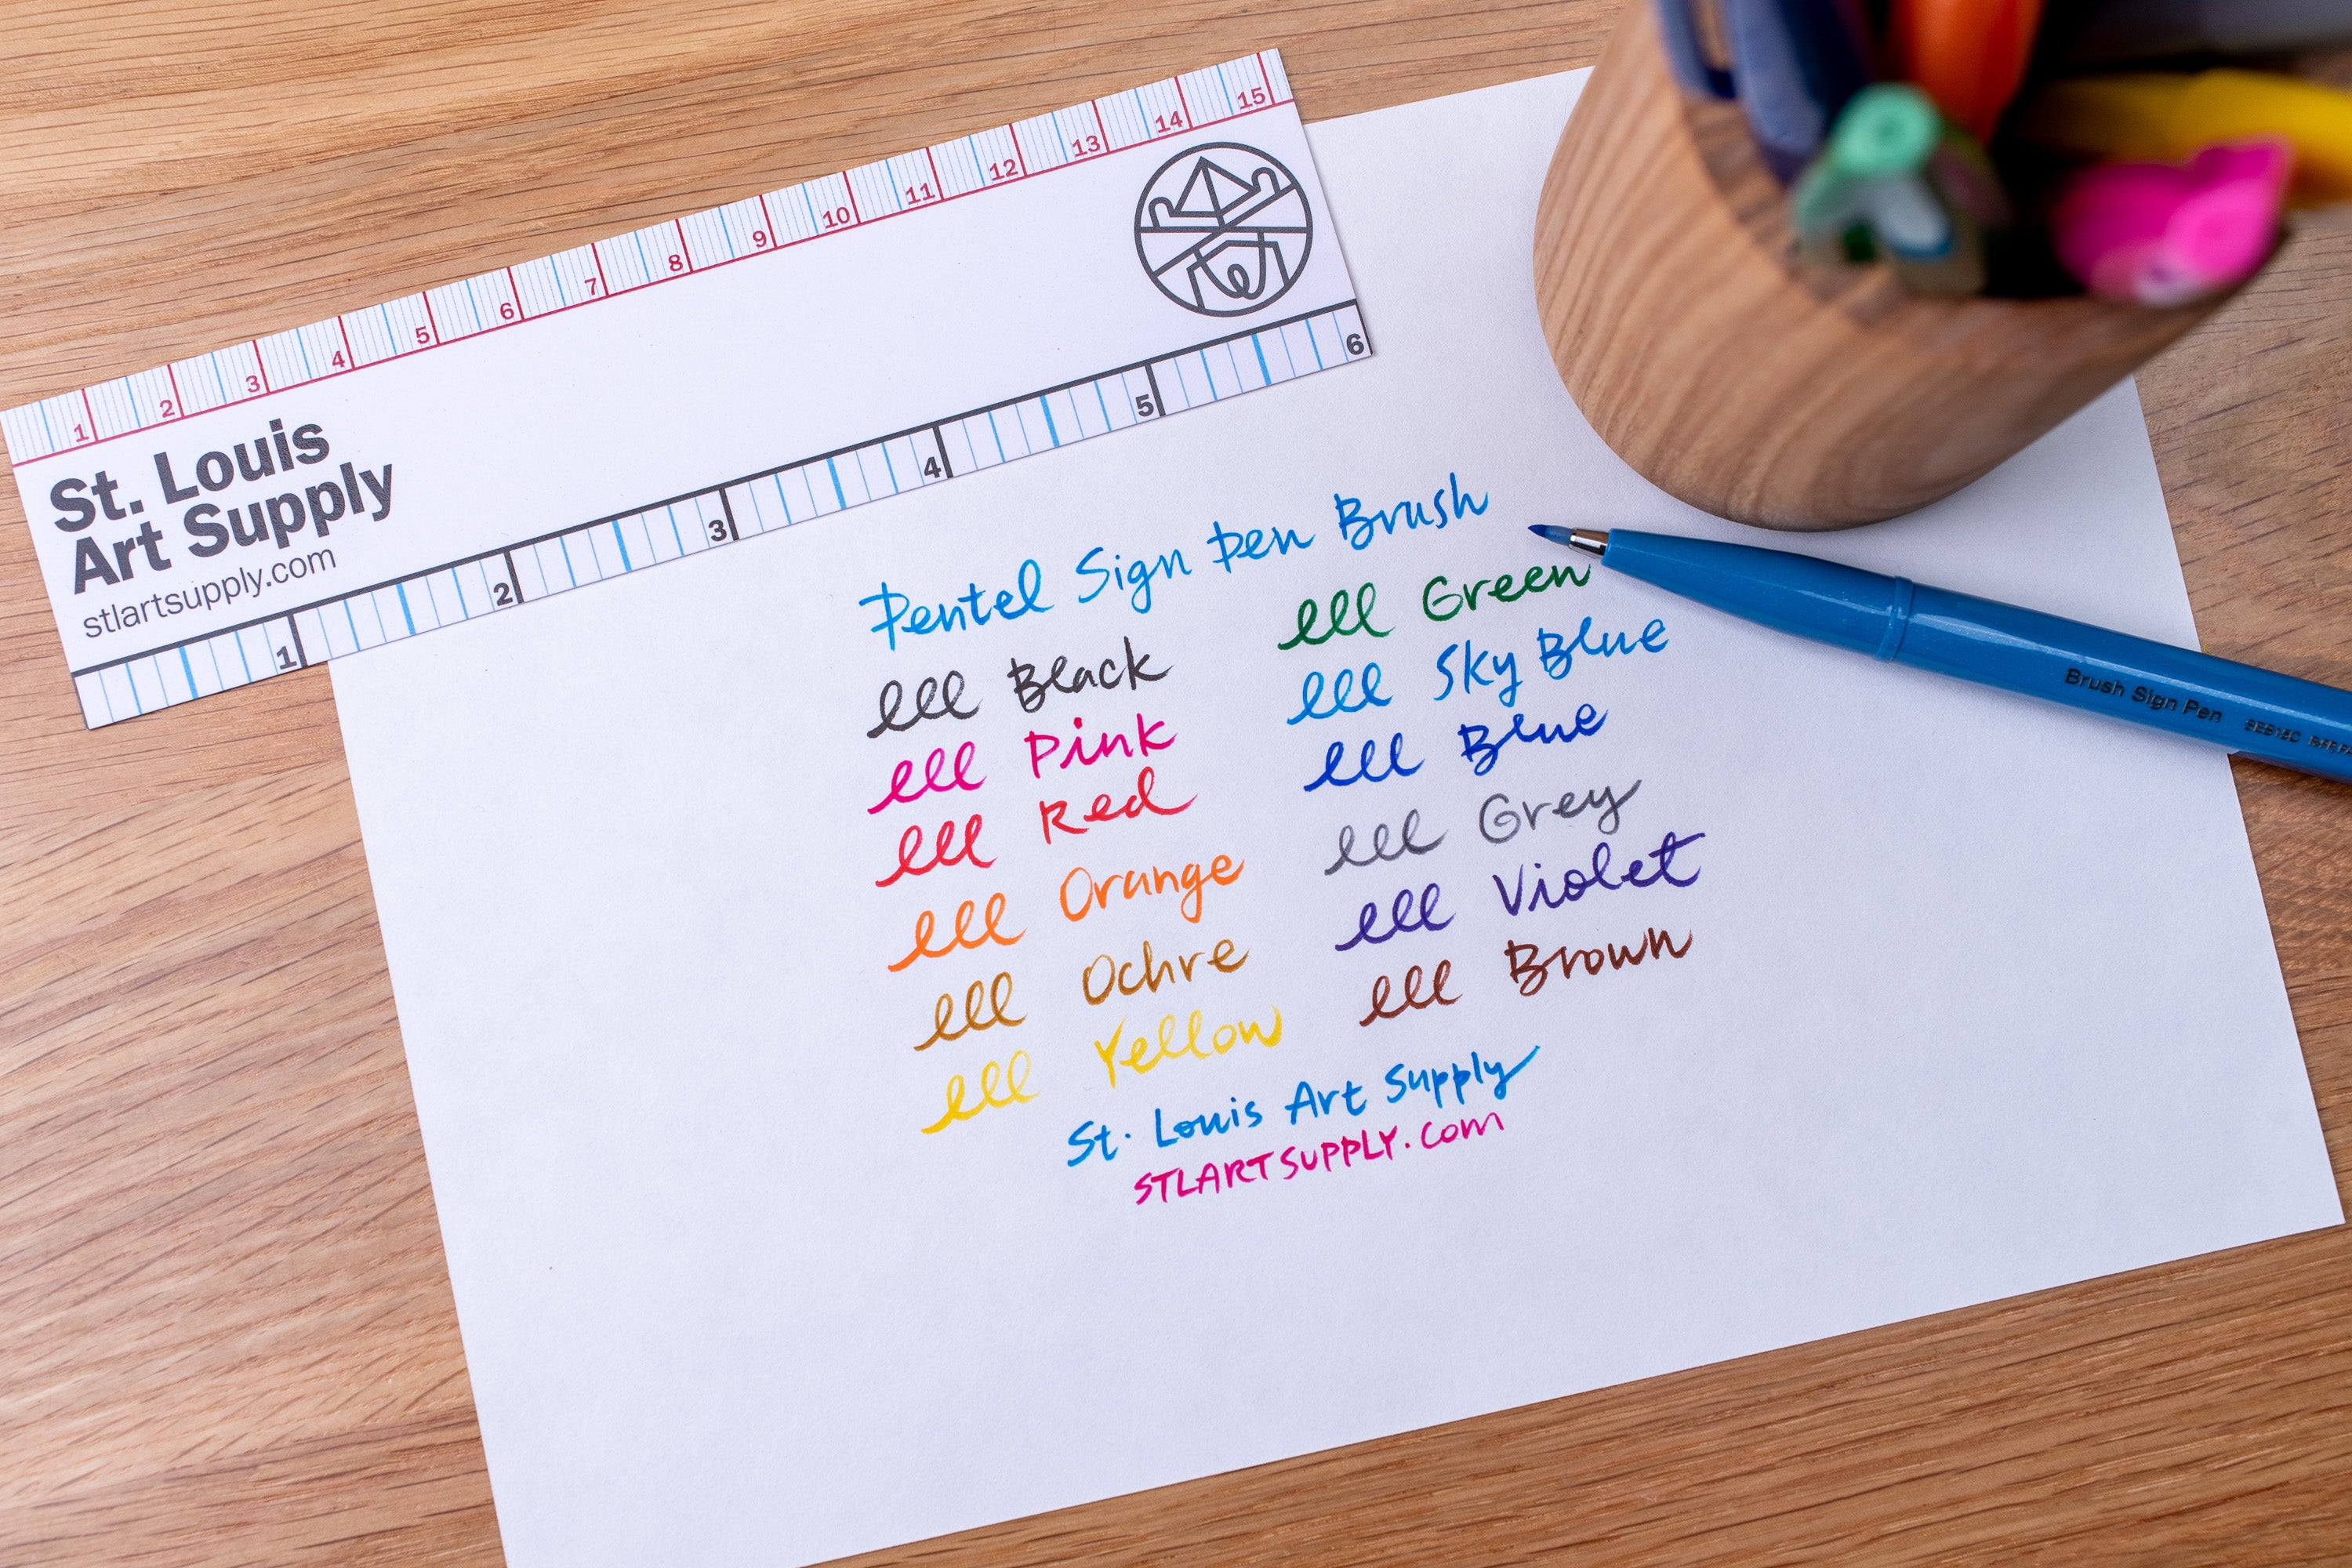 1 2 3 4 5 6 7 8 9 10 11 12 13 14 15
St. Louis
Art Supply
stlartsupply.com
1 2 3 4 5 6
Pentel Sign Pen Brush
lll Black
lll Pink
lll Red
lll Orange
lll Ochre
lll Yellow
lll Green
lll Sky Blue
lll Blue
lll Grey
lll Violet
lll Brown
St. Louis Art Supply
STLARTSUPPLY.com
Brush Sign Pen